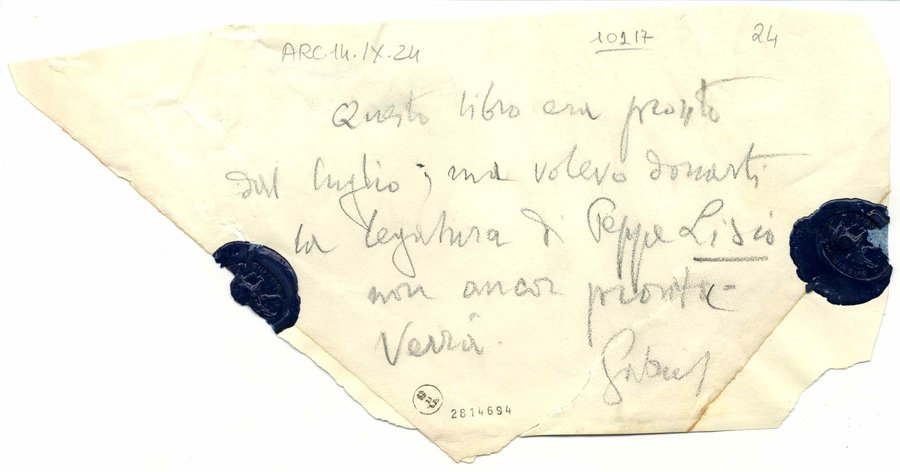 ARC.14.IX.24
10217
24
Questo libro era pronto
dal luglio; ma volevo donarti
la legatura di Peppe Lisio
non ancor pronta -
Verrà.
2814694